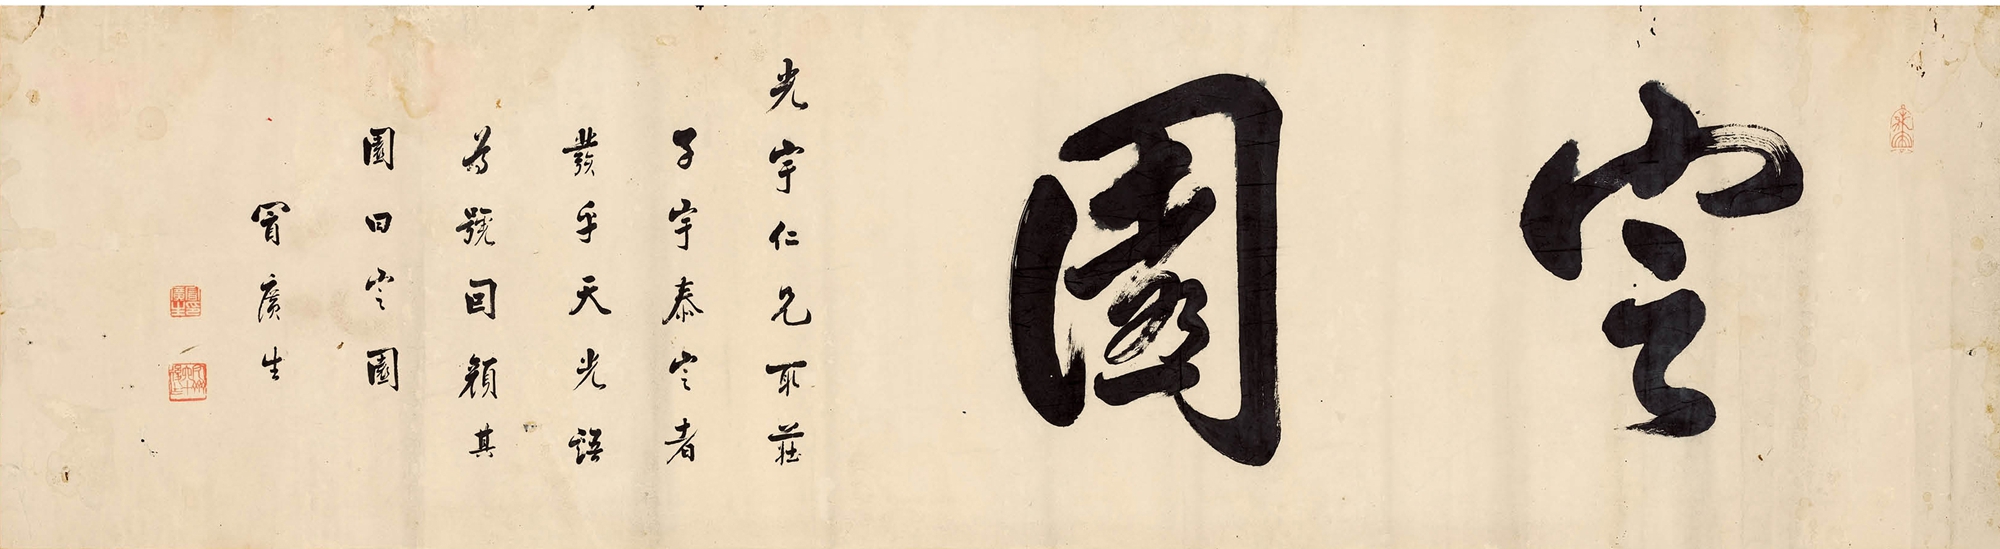 定園
光宇仁兄取莊
子宇泰定者
發乎天光語
為號因顏其
園曰定園
冒廣生